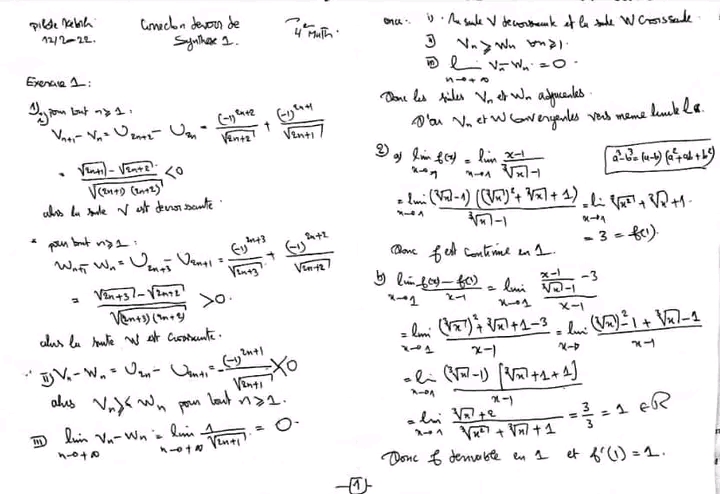 pilote Kebili
12/2022.
Correction devoir de
Synthèse 1.
4ème Math.
Exercice 1 :
1) i) pour tout n ≥ 1 :
V_{n+1} - V_n = U_{2n+2} - U_{2n} = (-1)^{2n+2}/√(2n+2) + (-1)^{2n+1}/√(2n+1)
= (√(2n+1) - √(2n+2))/√((2n+1)(2n+2)) < 0
alors la suite V est décroissante.
* pour tout n ≥ 1 :
W_{n+1} - W_n = U_{2n+3} - U_{2n+1} = (-1)^{2n+3}/√(2n+3) + (-1)^{2n+2}/√(2n+2)
= (√(2n+3) - √(2n+2))/√((2n+3)(2n+2)) > 0.
alors la suite W est croissante.
ii) V_n - W_n = U_{2n} - U_{2n+1} = -(-1)^{2n+1}/√(2n+1) > 0
alors V_n ≥ W_n pour tout n ≥ 1.
iii) lim_{n→+∞} V_n - W_n = lim_{n→+∞} 1/√(2n+1) = 0.
ona : i) la suite V décroissante et la suite W croissante.
ii) V_n ≥ W_n ∀n ≥ 1.
iii) lim_{n→+∞} V_n - W_n = 0.
Donc les suites V_n et W_n adjacentes.
D'où V_n et W convergentes vers même limite l.
2) a) lim_{x→1} f(x) = lim_{x→1} (x-1)/(∛x - 1)
a³-b³ = (a-b)(a²+ab+b²)
= lim_{x→1} (∛x - 1)((∛x)² + ∛x + 1)/(∛x - 1) = lim_{x→1} ∛x² + ∛x + 1.
= 3 = f(1).
Donc f est continue en 1.
b) lim_{x→1} (f(x) - f(1))/(x-1) = lim_{x→1} ((x-1)/(∛x - 1) - 3)/(x-1)
= lim_{x→1} ((∛x)² + ∛x + 1 - 3)/(x-1) = lim_{x→1} ((∛x)² - 1 + ∛x - 1)/(x-1)
= lim_{x→1} (∛x - 1)[∛x + 1 + 1]/(x-1)
= lim_{x→1} (∛x + 2)/(∛x² + ∛x + 1) = 3/3 = 1 ∈ ℝ
Donc f dérivable en 1 et f'(1) = 1.
-1-